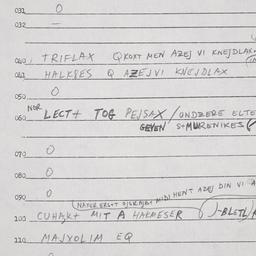 031 O
032 —
040 TRIFLAX QKOXT MEN AZEJ VI KNEJDLAX
041 HALKPES Q AZEJVI KNEJDLAX
050 O
NOR
060 LECT+ TOG PEJSAX / UNDZERE ELTE
GEVEN S+MURENIKES
070 O
080 O
090 O
MIDI HENT AZEJ DIN VI
100 CUHAKT MIT A HAKMESER
110 MAJVOLIM EQ